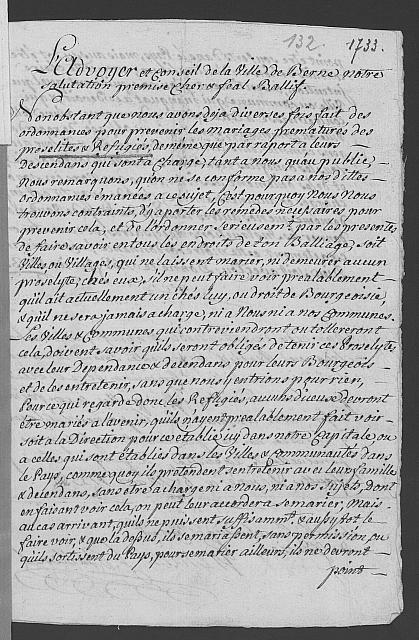 132. 1733.
L'Advoyer et Conseil de la Ville de Berne notre
Salutation premise Cher & feal Ballif.
Nonobstant que nous avons deja diverses fois fait des
ordonnances pour prevenir les mariages prematurés des
proselites & Refugiés, de meme que par raport a leurs
descendans qui sont a charge, tant a Nous qu'au publie,
Nous remarquons, qu'on ne se conforme pas a nos dittes
ordonnances émanées a ce sujet, C'est pourquoy Nous Nous
trouvons contraints, d'y aporter les remedes necessaires pour
prevenir cela, et de t'ordonner serieusemt. par les presentes
de faire savoir en tous les endroits de ton Balliage, soit
Villes ou Villages, qu'il ne laissent marier, ni demeurer aucun
proselyte, chés eux, s'il ne peut faire voir prealablement
qu'il ait actuellement un chés luy, ou droit de Bourgeoisie,
& qu'il ne sera jamais a charge, ni a Nous ni a nos Communes.
Les Villes & Communes qui contreviendront ou tollereront
cela, doivent savoir qu'ils seront obligés de tenir ces Proselytes
avec leur dependance & decendans pour leurs Bourgeois
et de les entretenir, sans que nous y entrions pour rien,
Pour ce qui regarde donc les Refugiés, aucuns d'iceux devront
être mariés a l'avenir, qu'ils n'ayent prealablement fait voir
soit a la Direction pour ce etablie icy dans notre Capitale, ou
a celles qui sont etablies dans les Villes & Communautés dans
le Pays, comme quoy ils pretendent s'entretenir avec leur famille
& decendans, sans etre a charge ni a Nous, ni a nos Sujets, dont
en faisant voir cela, on peut leur accorder a se marier, Mais
au cas arrivant, qu'ils ne puissent suffisammt. & aussy tot le
faire voir, & que la dessus, ils se mariassent, sans permission, ou
qu'ils sortissent du Pays, pour se marier ailleurs, ils ne devront
point